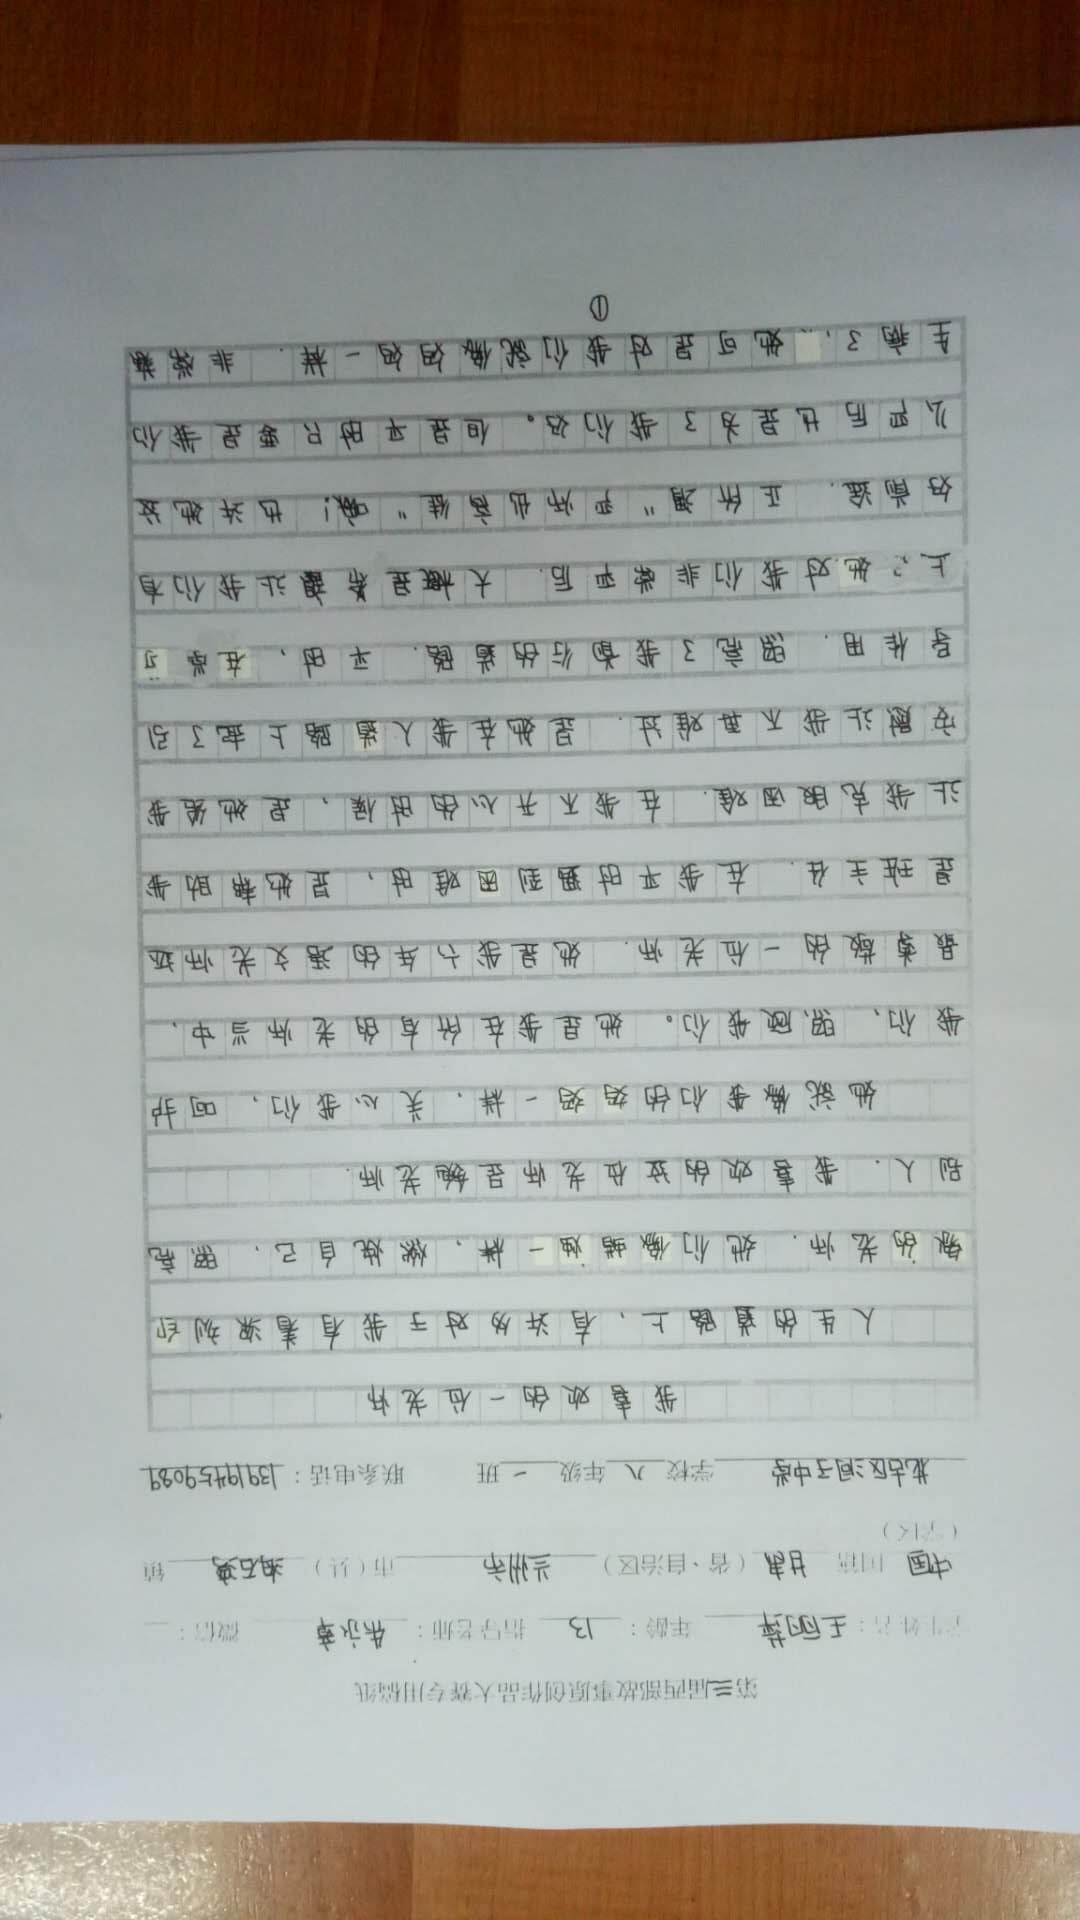 第三届西部故事原创作品大赛专用稿纸
学生姓名：王丽萍 年龄：13 指导老师：朱永章 微信：
中国 国籍 甘肃（省·自治区） 兰州市 市（县） 海石湾 镇
（学区）
龙古区洞子中学 学校 八 年级 一 班 联系电话：13919459089
我喜欢的一位老师
人生的道路上，有许多对于我有着深刻印
象的老师．她们像蜡烛一样，燃烧自己．照亮
别人．我喜欢的这位老师是鲍老师．
她就像我们的妈妈一样，关心我们，呵护
我们，照顾我们。她是我在所有的老师当中，
最尊敬的一位老师．她是我六年的语文老师还
是班主任．在我平时遇到困难时，是她帮助我
让我克服困难．在我不开心的时候，是她给我
安慰让我不再难过．是她在我人道路上起了引
导作用．照亮了我前行的道路．平时，在学习
上，她对我们非常严厉．大概是希望让我们有
好前途．正所谓“严师出高徒”嘛！也许她这
么严厉也是为了我们好。但是平时只要是我们
生病了，她可是对我们就像妈妈一样．非常着
①